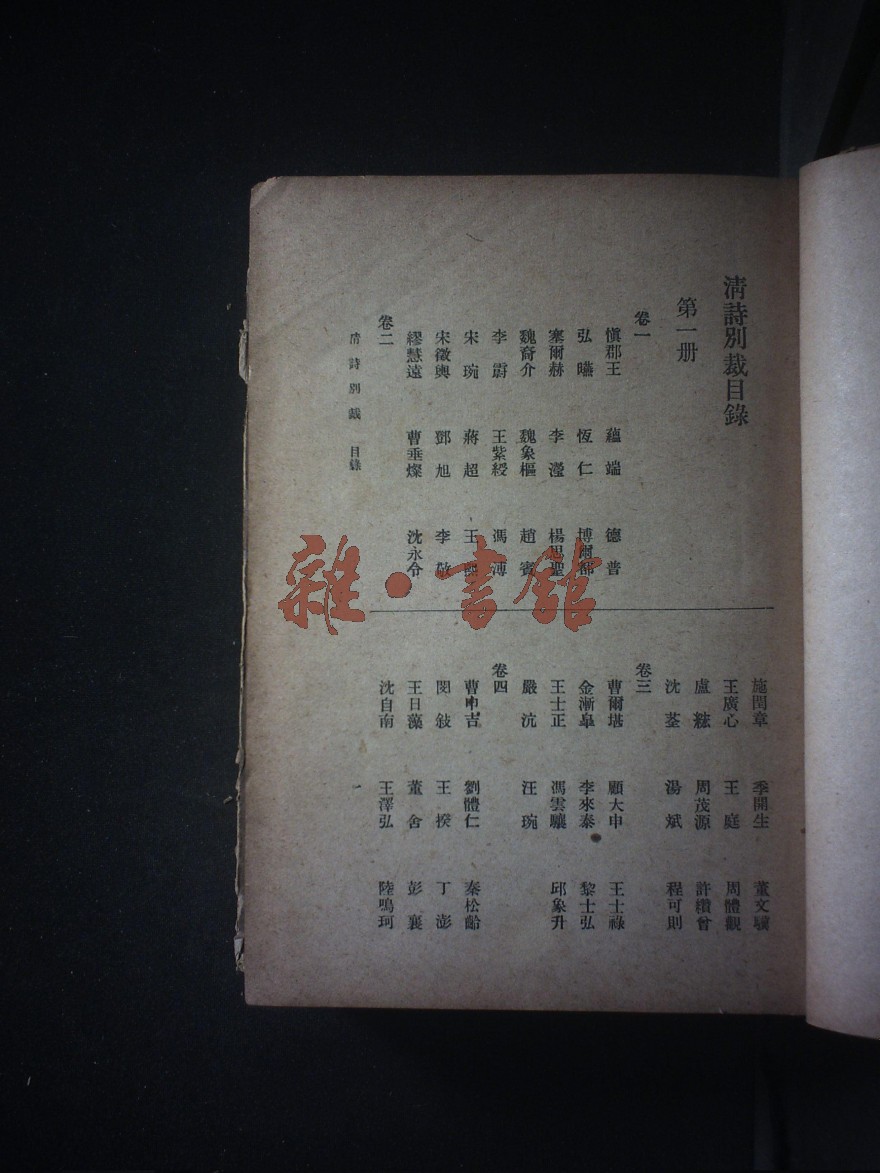 清詩別裁目錄
第一册
卷一
慎郡王 蘊端 德普
弘曣 恆仁 博爾都
塞爾赫 李瀅 楊思聖
魏裔介 魏象樞 趙賓
李霨 王紫綬 馮溥
宋琬 蔣超 王
宋徵輿 鄧旭 李敬
繆慧遠 曹垂燦 沈永令
卷二
清詩別裁 目錄
施閏章 季開生 董文驥
王廣心 王庭 周體觀
盧綋 周茂源 許纘曾
沈荃 湯斌 程可則
卷三
曹爾堪 顧大申 王士祿
金漸皐 李來泰 黎士弘
王士正 馮雲驤 邱象升
嚴沆 汪琬
卷四
曹申吉 劉體仁 秦松齡
閔敍 王揆 丁澎
王日藻 董含 彭襄
沈自南 王澤弘 陸鳴珂
一
雜·書館